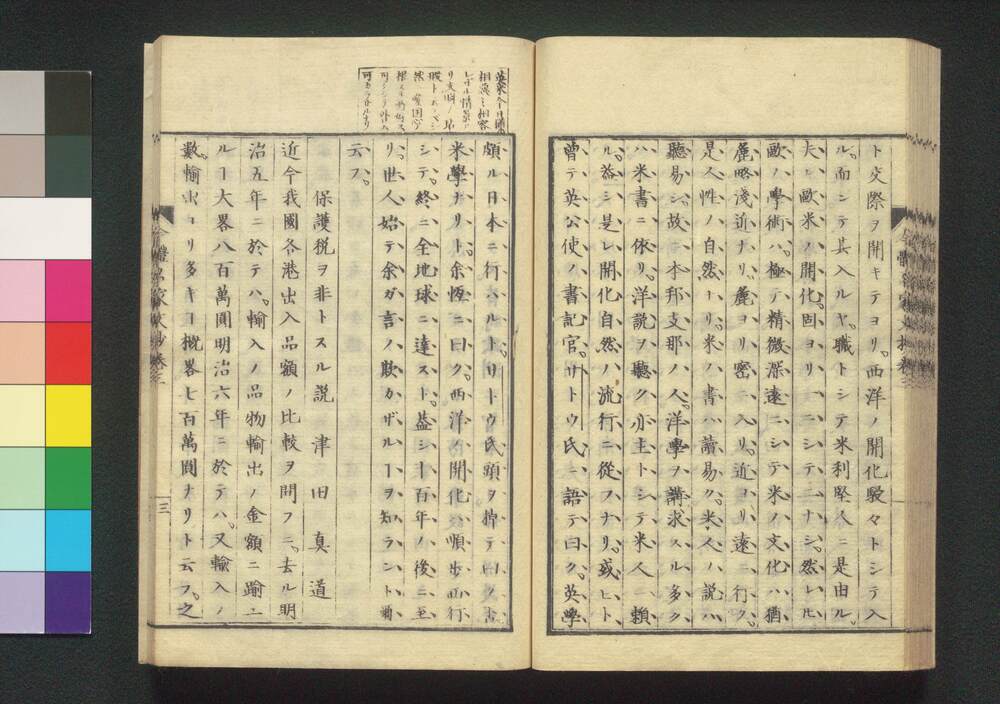 ト交際ヲ開キテヨリ。西洋ノ開化駸々トシテ入
ル。而シテ其入ルヤ。職トシテ米利堅人ニ是由ル。
夫レ歐米ノ開化。固ヨリ一ニシテ二ナシ。然レ𪜈
歐ノ學術ハ。極テ精微深遠ニシテ米ノ文化ハ猶
麁略淺近ナリ。麁ヨリ密ニ入リ。近ヨリ遠ニ行ク。
是人性ノ自然ナリ。米ハ書ハ讀易ク。米人ハ說ハ
聽易シ。故ニ本邦支那ノ人。洋學ヲ講求スル多ク
ハ米書ニ依リ。洋說ヲ聽ク亦主トシテ米人ニ賴
ル。蓋シ是レ開化自然ハ流行ニ從フナリ。或ヒト
曾テ英公使ノ書記官。サトウ氏ニ語テ曰ク。英學
頗ル日本ニ行ハルト。サトウ氏頭ヲ掉テ曰ク否
米學ナリト。余恆ニ曰ク。西洋ノ開化ハ順步西行
シテ。終ニ全地球ニ達スト。蓋シ千百年ノ後ニ至
リ。世人始テ余ガ言ノ欺カザルヿヲ知ラント。爾
云フ。
保護税ヲ非トスル説 津田 真 道
近今我國各港出入品額ノ比較ヲ問フニ。去ル明
治五年ニ於テハ。輸入ノ品物輸出ノ金額ニ踰ユ
ルヿ大畧八百萬圓明治六年ニ於テハ。又輸入ノ
數。輸出ヨリ多キヿ概畧七百萬圓ナリト云フ。之
三